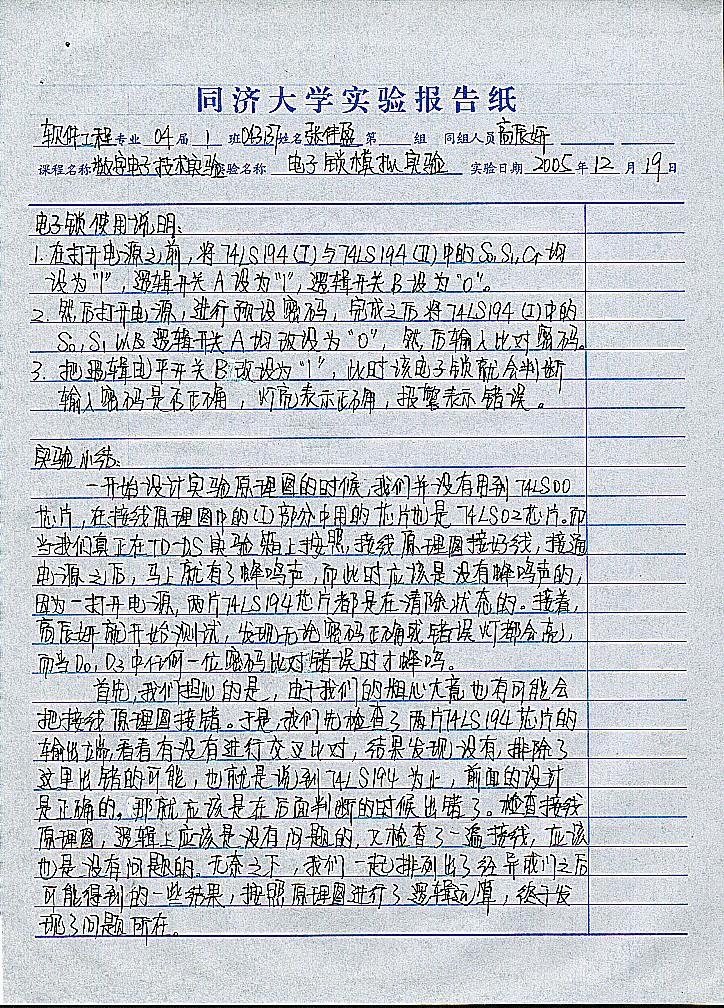 同济大学实验报告纸
软件工程专业 04届 1班 姓名张佳盈 第 组 同组人员高辰妍
课程名称数字电子技术实验 实验名称 电子锁模拟实验 实验日期 2005年12月19日
电子锁使用说明:
1. 在打开电源之前,将74LS194(I)与74LS194(II)中的S0,S1,Cr均
设为"1",逻辑开关A设为"1",逻辑开关B设为"0"。
2. 然后打开电源,进行预设密码,完成之后将74LS194(I)中的
S0,S1以及逻辑开关A均改设为"0",然后输入比对密码。
3. 把逻辑电平开关B改设为"1",此时该电子锁就会判断
输入密码是否正确,灯亮表示正确,报警表示错误。
实验小结:
一开始设计实验原理图的时候,我们并没有用到74LS00
芯片,在接线原理图中的(I)部分中用的芯片也是74LS02芯片。而
当我们真正在TD-DS实验箱上按照接线原理图接好线,接通
电源之后,马上就有了蜂鸣声,而此时应该是没有蜂鸣声的,
因为一打开电源,两片74LS194芯片都是在清除状态的。接着,
高辰妍就开始测试,发现无论密码正确或错误灯都会亮,
而当D0,D3中任何一位密码比对错误时才蜂鸣。
首先,我们担心的是,由于我们的粗心大意也有可能会
把接线原理图接错。于是,我们先检查了两片74LS194芯片的
输出端,看看有没有进行交叉比对,结果发现没有,排除了
这里出错的可能,也就是说到74LS194为止,前面的设计
是正确的。那就应该是在后面判断的时候出错了。检查接线
原理图,逻辑上应该是没有问题的,又检查了一遍接线,应该
也是没有问题的。无奈之下,我们一起排列出了经异或门之后
可能得到的一些结果,按照原理图进行了逻辑运算,终于发
现了问题所在。